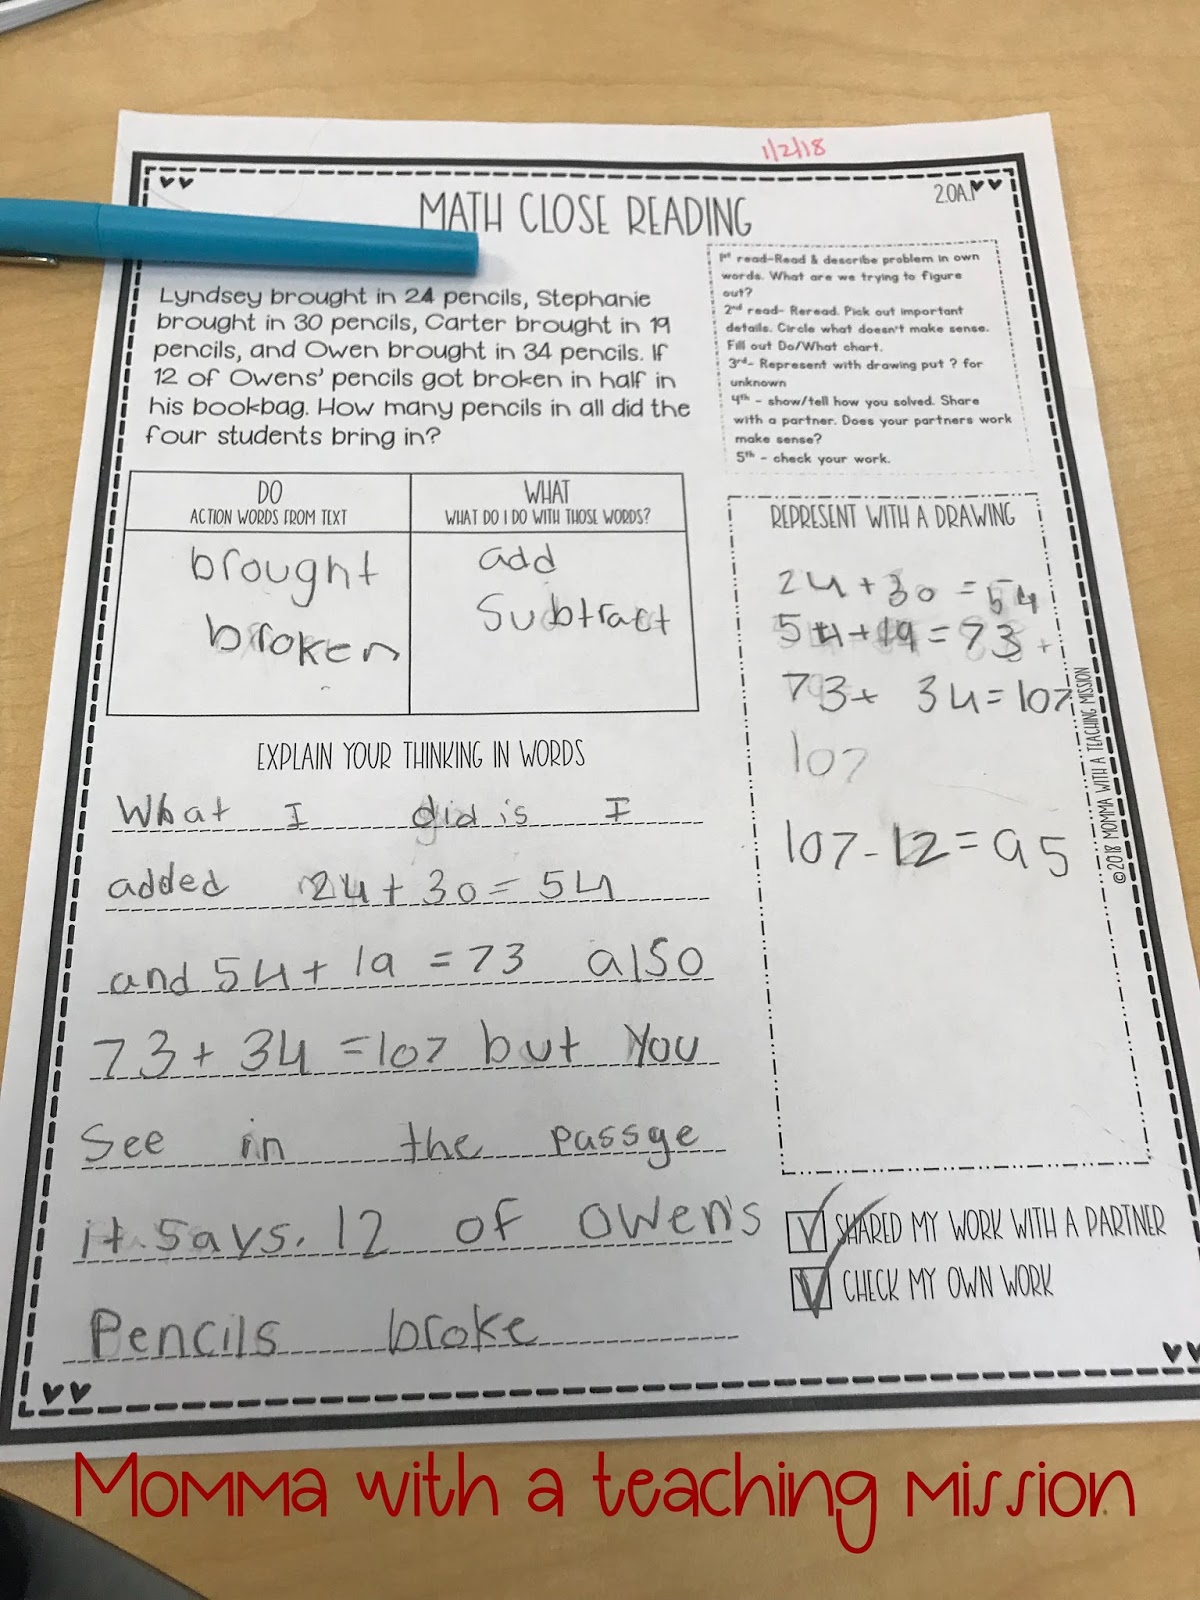 1/2/18
2.OA.1
MATH CLOSE READING
Lyndsey brought in 24 pencils, Stephanie
brought in 30 pencils, Carter brought in 19
pencils, and Owen brought in 34 pencils. If
12 of Owens' pencils got broken in half in
his bookbag. How many pencils in all did the
four students bring in?
1st read-Read & describe problem in own
words. What are we trying to figure
out?
2nd read- Reread. Pick out important
details. Circle what doesn't make sense.
Fill out Do/What chart.
3rd- Represent with drawing put ? for
unknown
4th - show/tell how you solved. Share
with a partner. Does your partners work
make sense?
5th - check your work.
DO
ACTION WORDS FROM TEXT
brought
broken
WHAT
WHAT DO I DO WITH THOSE WORDS?
add
Subtract
REPRESENT WITH A DRAWING
24 + 30 = 54
54 + 19 = 73 +
73 + 34 = 107
107
107 - 12 = 95
©2018 MOMMA WITH A TEACHING MISSION
EXPLAIN YOUR THINKING IN WORDS
What I did is I
added 24 + 30 = 54
and 54 + 19 = 73 also
73 + 34 = 107 but You
See in the passge
it says. 12 of Owen's
Pencils broke
SHARED MY WORK WITH A PARTNER
CHECK MY OWN WORK
Momma with a teaching mission